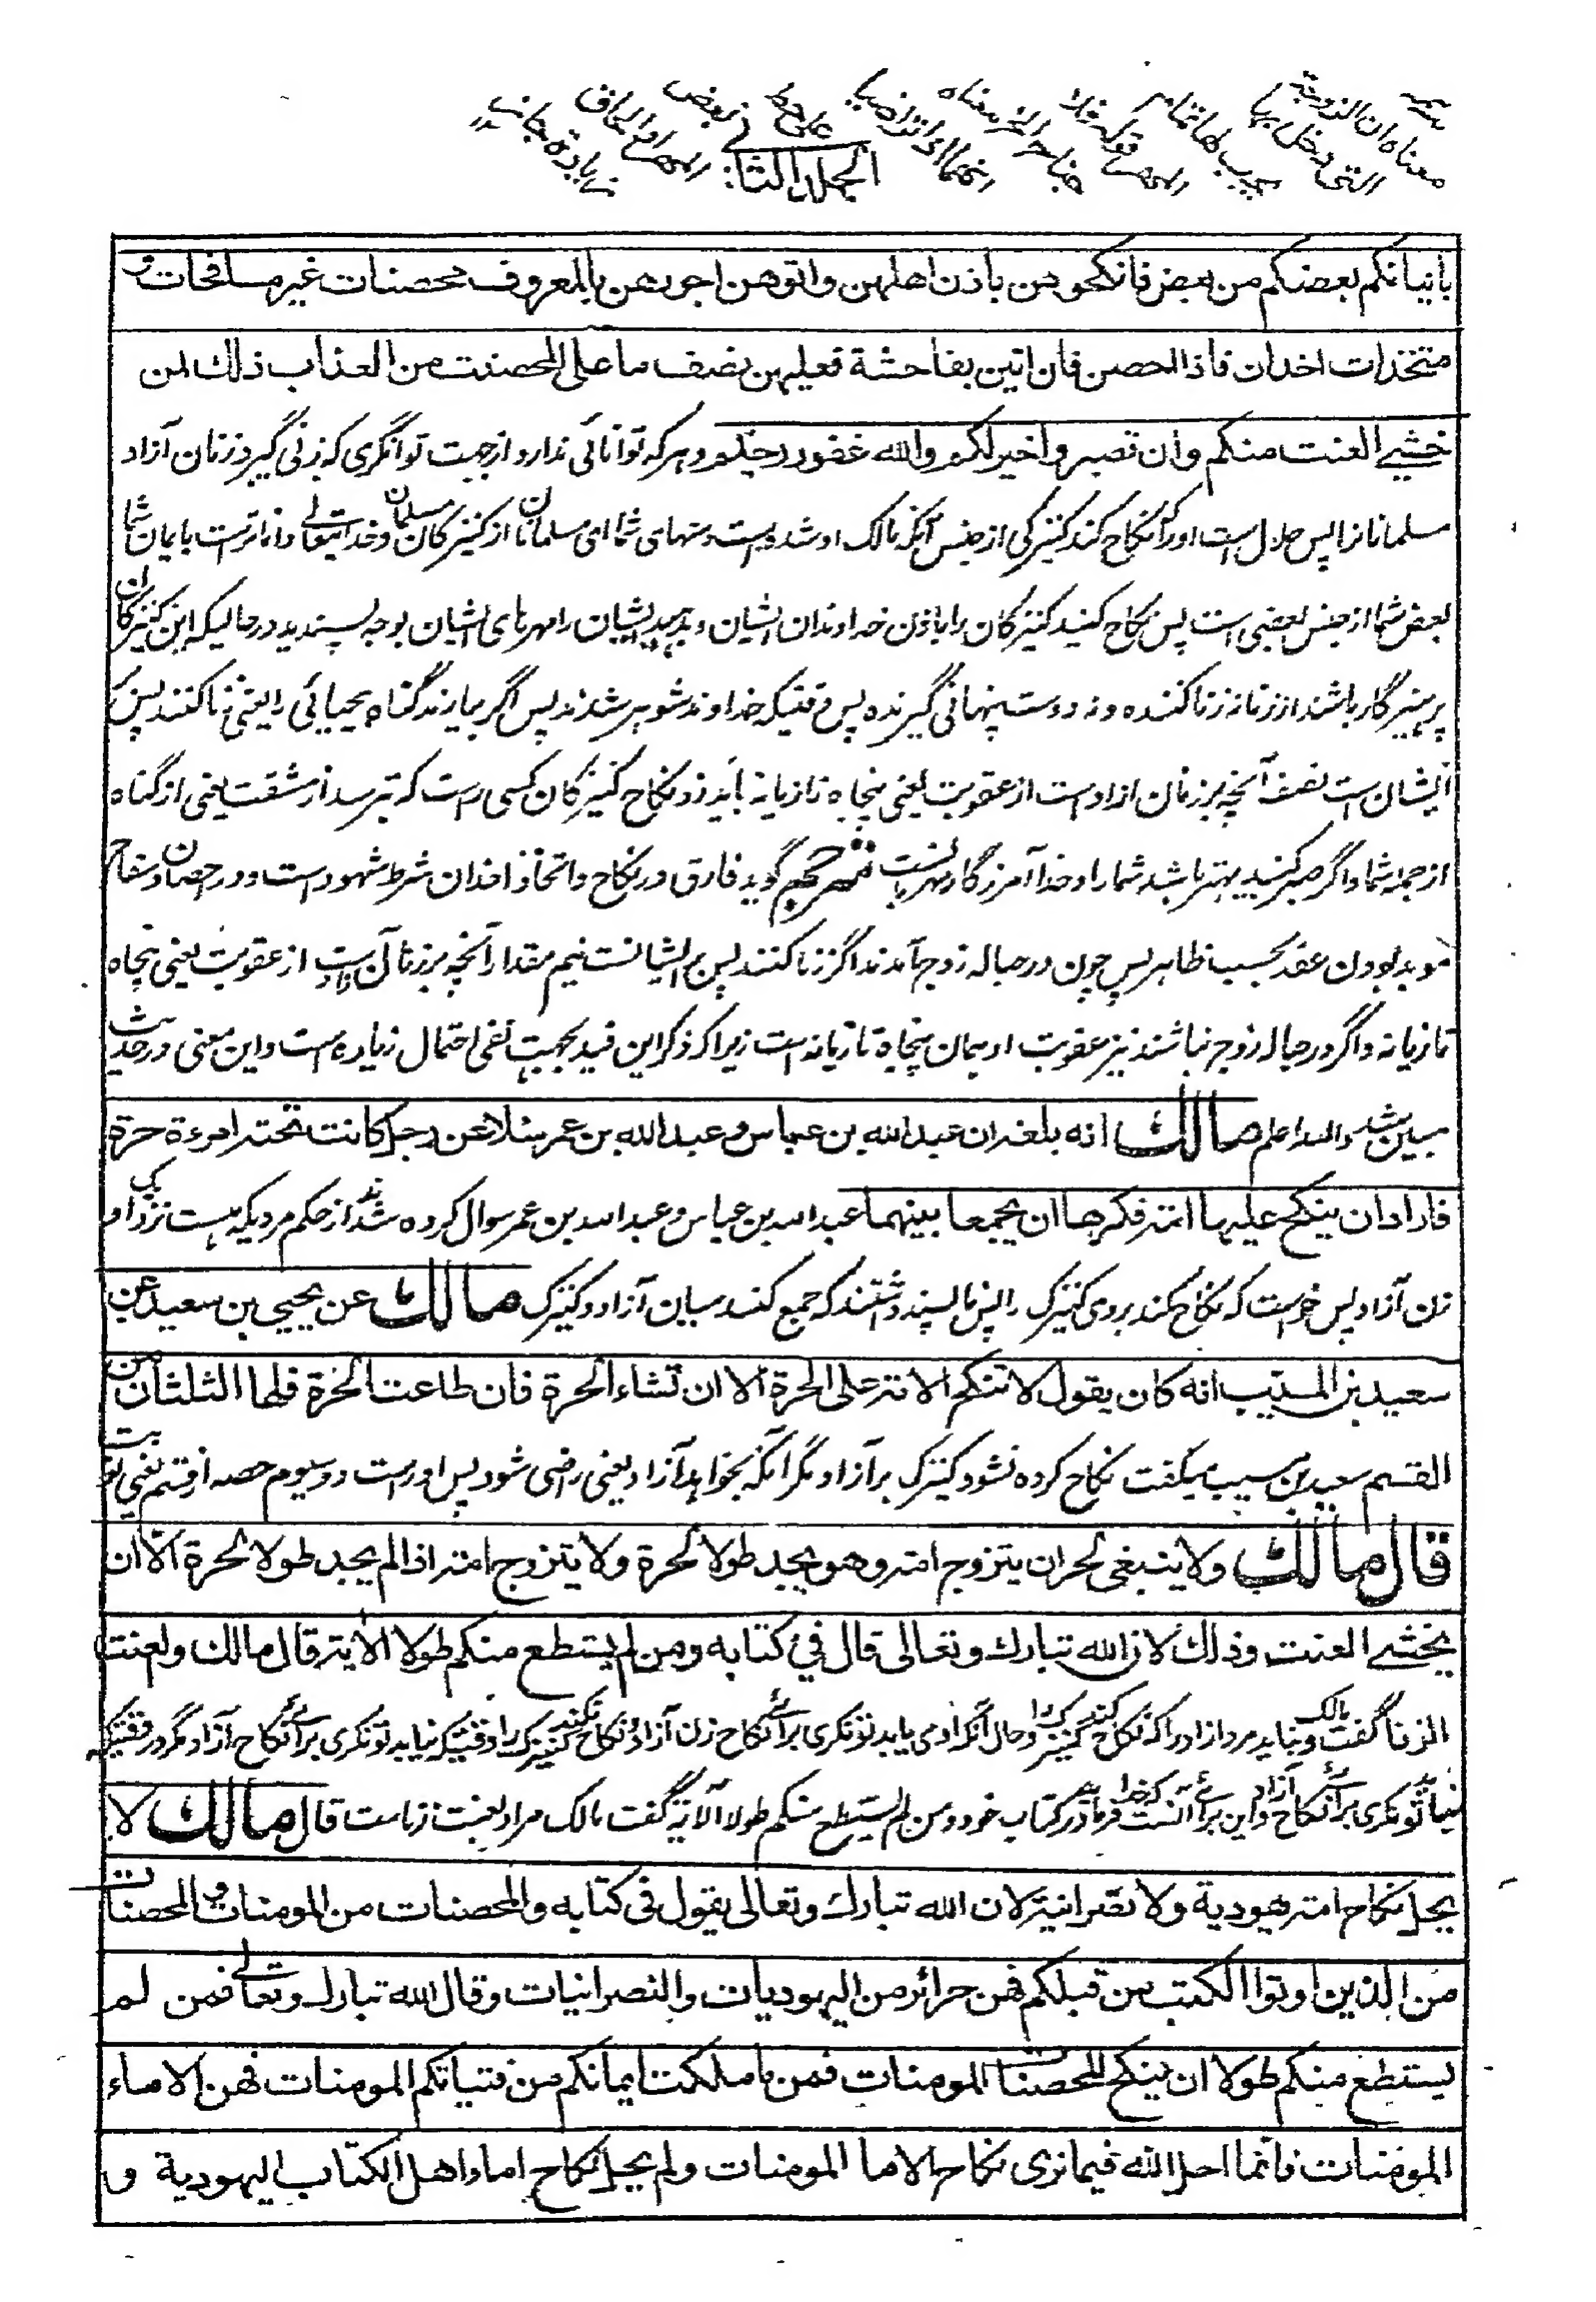 الجلد الثانی
بایمانکم بعضکم من بعض فانکحوهن باذن اهلهن واتوهن اجورهن بالمعروف محصنات غیر مسافحات و
متخذات اخدان فاذا احصن فان اتین بفاحشة فعلیهن نصف ما علی المحصنت من العذاب ذلك لمن
خشی العنت منکم وان تصبروا خیر لکم والله غفور رحیم وهر که توانائی ندارد از جهت توانگری که زنی گیرد زنان آزاد
مسلمانان را پس حلال است اورا که نکاح کند کنیزکی از جنس آنکه مالک او شده است دستهای شما ای مسلمانان از کنیزکان مسلمان وخدایتعالی داناتر است بایمان شما
بعض شما از جنس بعضی است پس نکاح کنید کنیزکان را باذن خداوندان ایشان وبدهید ایشان را مهرهای ایشان بوجه پسندیده درحالیکه این کنیزکان
پرهیزگار باشند از زنا نه زنا کننده ونه دوست پنهانی گیرنده پس وقتیکه خداوند شوهر شدند پس اگر بیارند گناه بیحیائی را یعنی زنا کنند پس بر
ایشان است نصف آنچه بر زنان ازاد است از عقوبت یعنی پنجاه تازیانه باید زد نکاح کنیزکان کسی راست که بترسد از مشقت یعنی از گناه
از جمله شما واگر صبر کنید بهتر باشد شما را وخدا آمرزگار مهربانست مترجم گوید فارق در نکاح واتخاذ اخدان شرط شهود است ودر احصان وسفاح
موبد بودن عقد بحسب ظاهر پس چون در حباله زوج آمدند اگر زنا کنند پس بر ایشانست نیم مقدار آنچه بر زنان آزاد است از عقوبت یعنی پنجاه
تازیانه واگر در حباله زوج نباشند نیز عقوبت او همان پنجاه تازیانه است زیرا که ذکر این قید بجهت نفی احتمال زیاده است واین معنی در حدیث
مبین شد والله اعلم مالك انه بلغه ان عبدالله بن عباس وعبدالله بن عمر سئلا عن رجل کانت تحته امرءة حرة
فاراد ان ینکح علیها امته فکرها ان یجمعا بینهما عبدالله بن عباس وعبدالله بن عمر سوال کرده شدند از حکم مردیکه هست نزدیک او
زن آزاد پس خواست که نکاح کند بروی کنیزک را پس ناپسند داشتند که جمع کند میان آزاد وکنیزک مالك عن یحیی بن سعید عن
سعید بن المسیب انه کان یقول لا تنکح الامة علی الحرة الا ان تشاء الحرة فان طاعت الحرة فلها الثلثان من
القسم سعید بن مسیب میگفت نکاح کرده نشود کنیزک بر آزاد مگر آنکه بخواهد آزاد یعنی راضی شود پس اوراست دو سیوم حصه از قسم یعنی نوبت
قال مالك ولا ینبغی لحر ان یتزوج امة وهو یجد طولا لحرة ولا یتزوج امة اذا لم یجد طولا لحرة الا ان
یخشی العنت وذلك لان الله تبارك وتعالی قال فی کتابه ومن لم یستطع منکم طولا الایة قال مالك والعنت
الزنا گفت مالک ونباید مرد ازاد را که نکاح کند کنیزک را وحال آنکه او می یابد تونگری برای نکاح زن آزاد ونکاح نکند کنیزک را وقتیکه نیابد تونگری برای نکاح آزاد مگر در وقتیکه
نیابد تونگری برای نکاح آزاد واین برای آنست که خدا فرمود در کتاب خود ومن لم یستطع منکم طولا الآیة گفت مالک مراد بعنت زناست قال مالك لا
یحل نکاح امة یهودیة ولا نصرانیة لان الله تبارك وتعالی یقول فی کتابه والمحصنات من المومنات والمحصنات
من الذین اوتوا الکتب من قبلکم فهن حرائر من الیهودیات والنصرانیات وقال الله تبارك وتعالی فمن لم
یستطع منکم طولا ان ینکح المحصنات المومنات فمن ما ملکت ایمانکم من فتیاتکم المومنات فهن الاماء
المومنات فانما احل الله فیما نری نکاح الاما المومنات ولم یحل نکاح اماء اهل الکتاب الیهودیة و